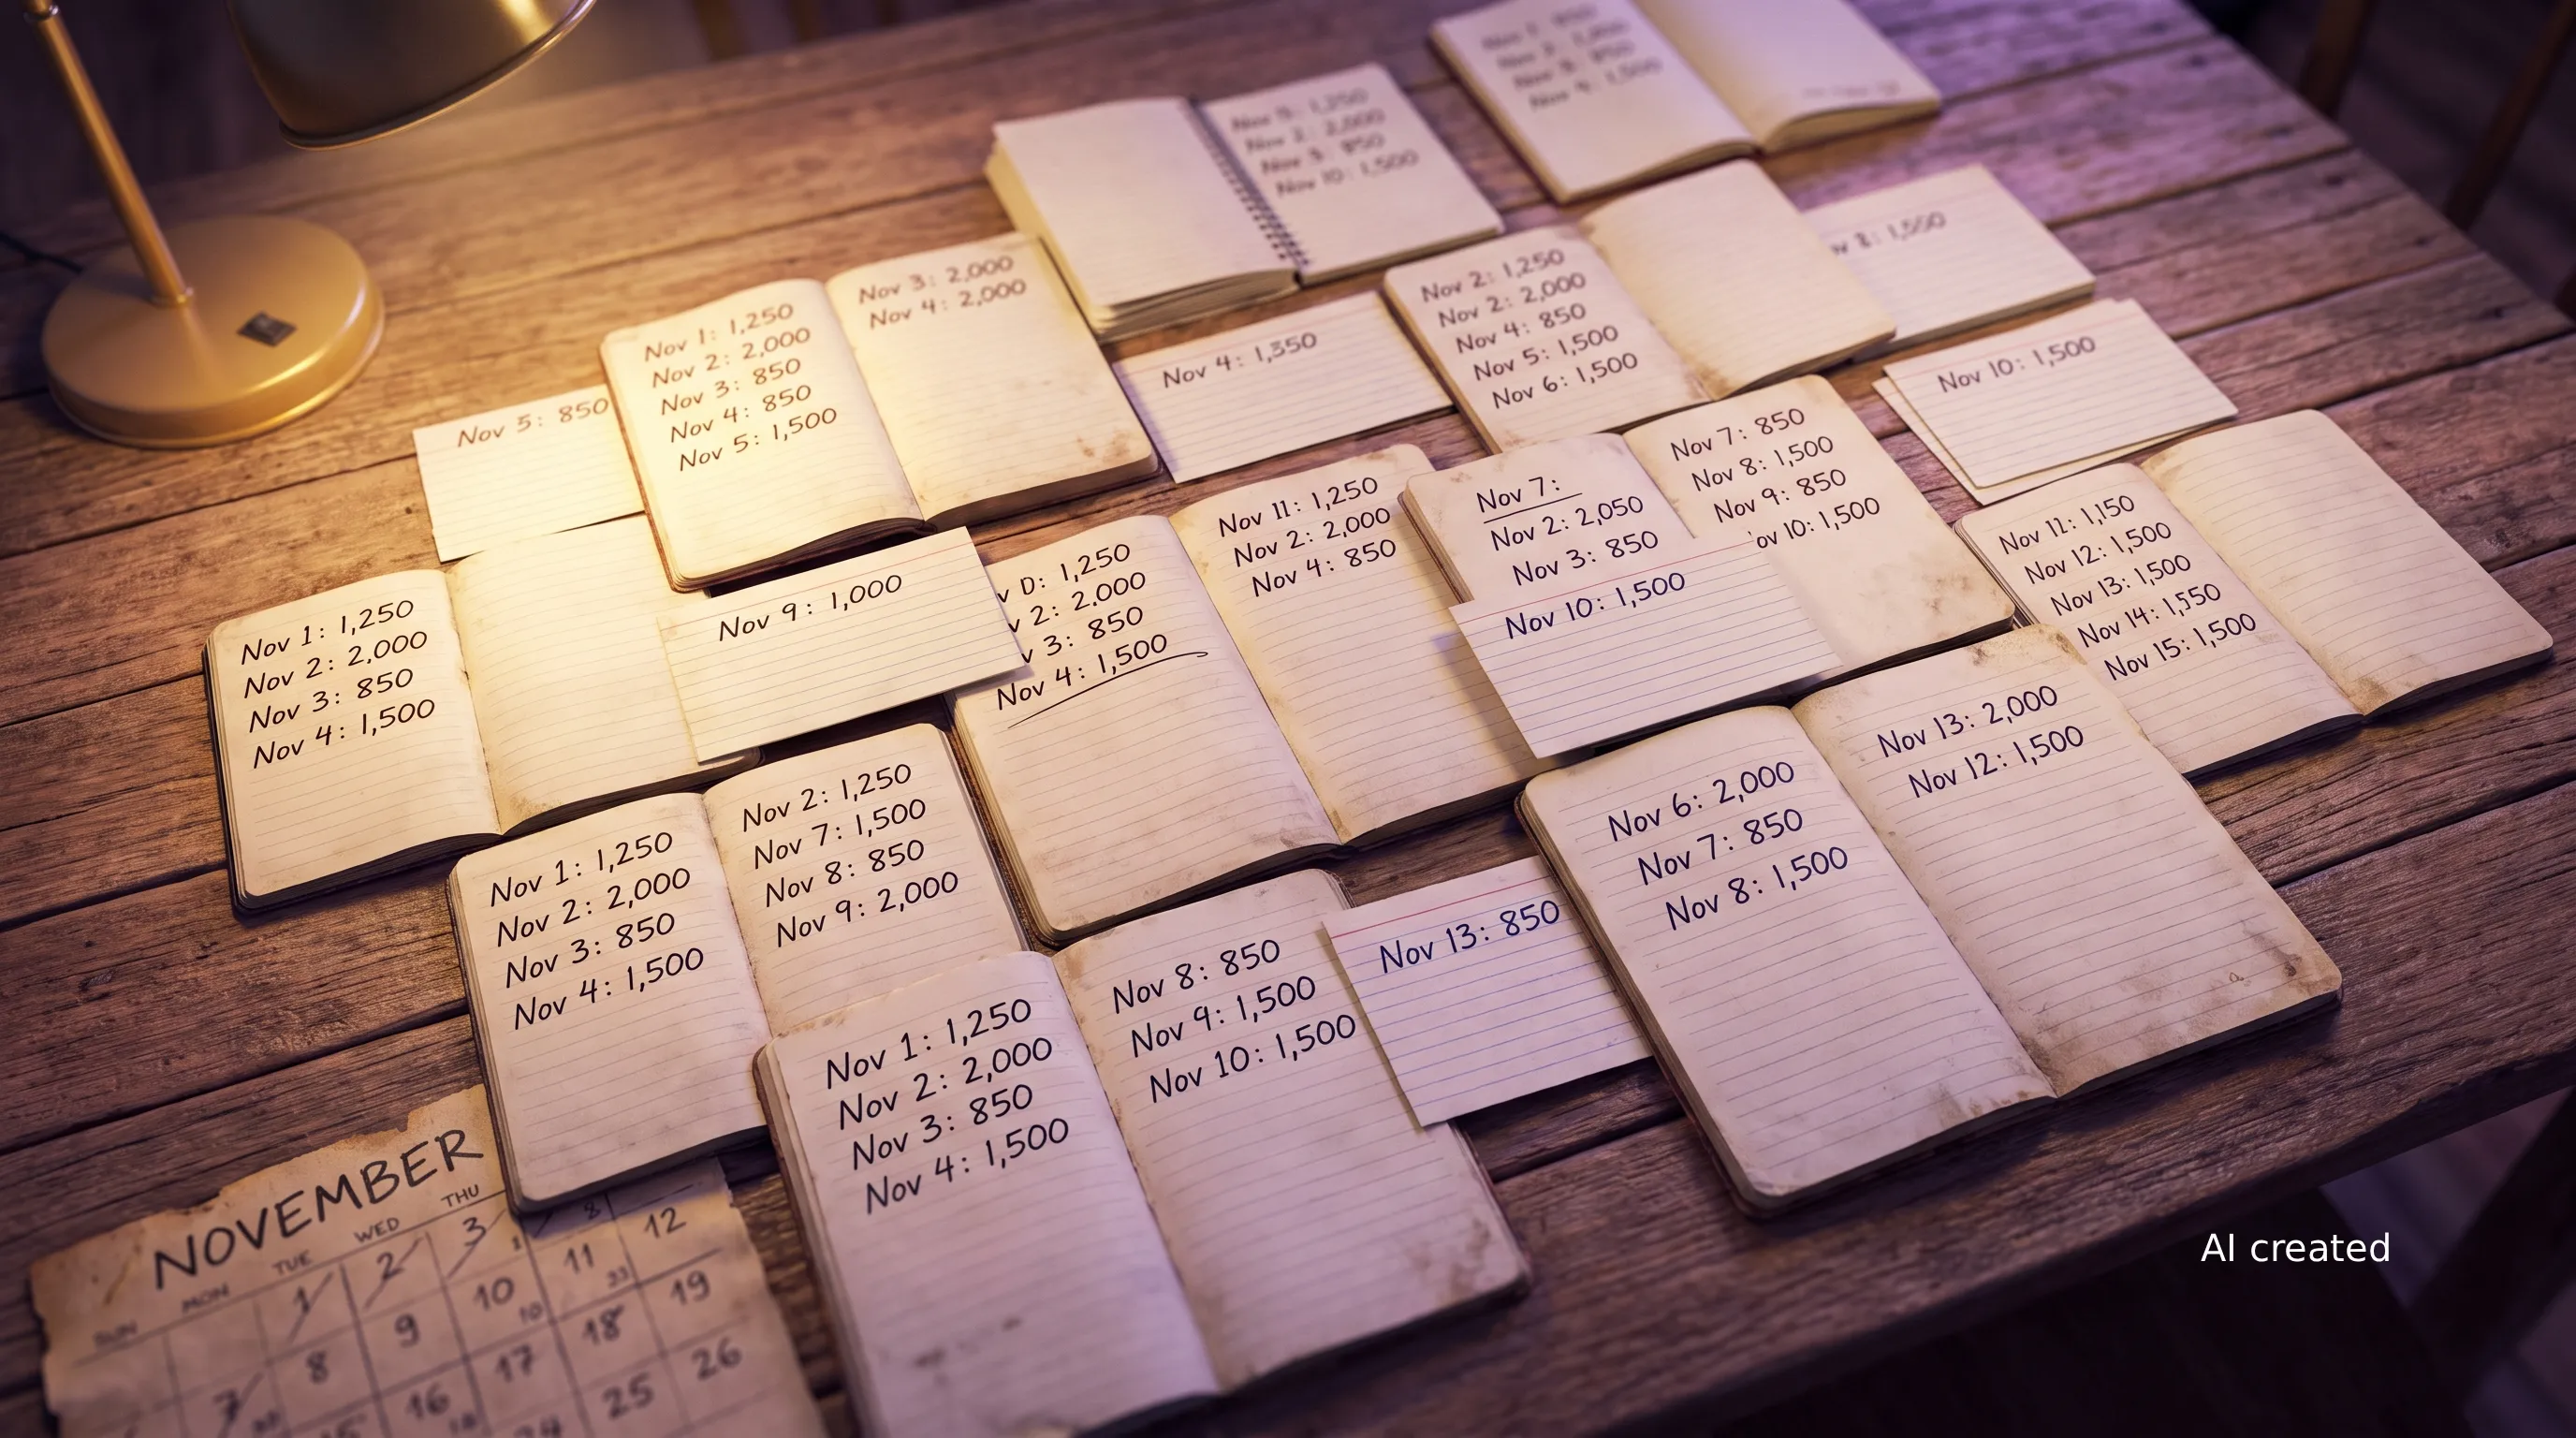 Nov 3: 2,000
Nov 4: 2,000
Nov 1: 1,250
Nov 2: 2,000
Nov 3: 850
Nov 4: 850
Nov 5: 1,500
Nov 5: 850
Nov 4: 1,350
Nov 2: 1,250
Nov 2: 2,000
Nov 4: 850
Nov 5: 1,500
Nov 6: 1,500
Nov 10: 1,500
Nov 7:
Nov 2: 2,050
Nov 3: 850
Nov 7: 850
Nov 8: 1,500
Nov 9: 850
ov 10: 1,500
Nov 10: 1,500
Nov 11: 1,150
Nov 12: 1,500
Nov 13: 1,500
Nov 14: 1,550
Nov 15: 1,500
Nov 1: 1,250
Nov 2: 2,000
Nov 3: 850
Nov 4: 1,500
Nov 9: 1,000
v D: 1,250
v 2: 2,000
v 3: 850
Nov 4: 1,500
Nov 11: 1,250
Nov 2: 2,000
Nov 4: 850
Nov 1: 1,250
Nov 2: 2,000
Nov 3: 850
Nov 4: 1,500
Nov 2: 1,250
Nov 7: 1,500
Nov 8: 850
Nov 9: 2,000
Nov 6: 2,000
Nov 7: 850
Nov 8: 1,500
Nov 13: 2,000
Nov 12: 1,500
Nov 1: 1,250
Nov 2: 2,000
Nov 3: 850
Nov 4: 1,500
Nov 8: 850
Nov 9: 1,500
Nov 10: 1,500
Nov 13: 850
NOVEMBER
SUN MON TUE WED THU
1 2 3 8 12
8 9 10 11 19
7 16 17 18 26
25
AI created